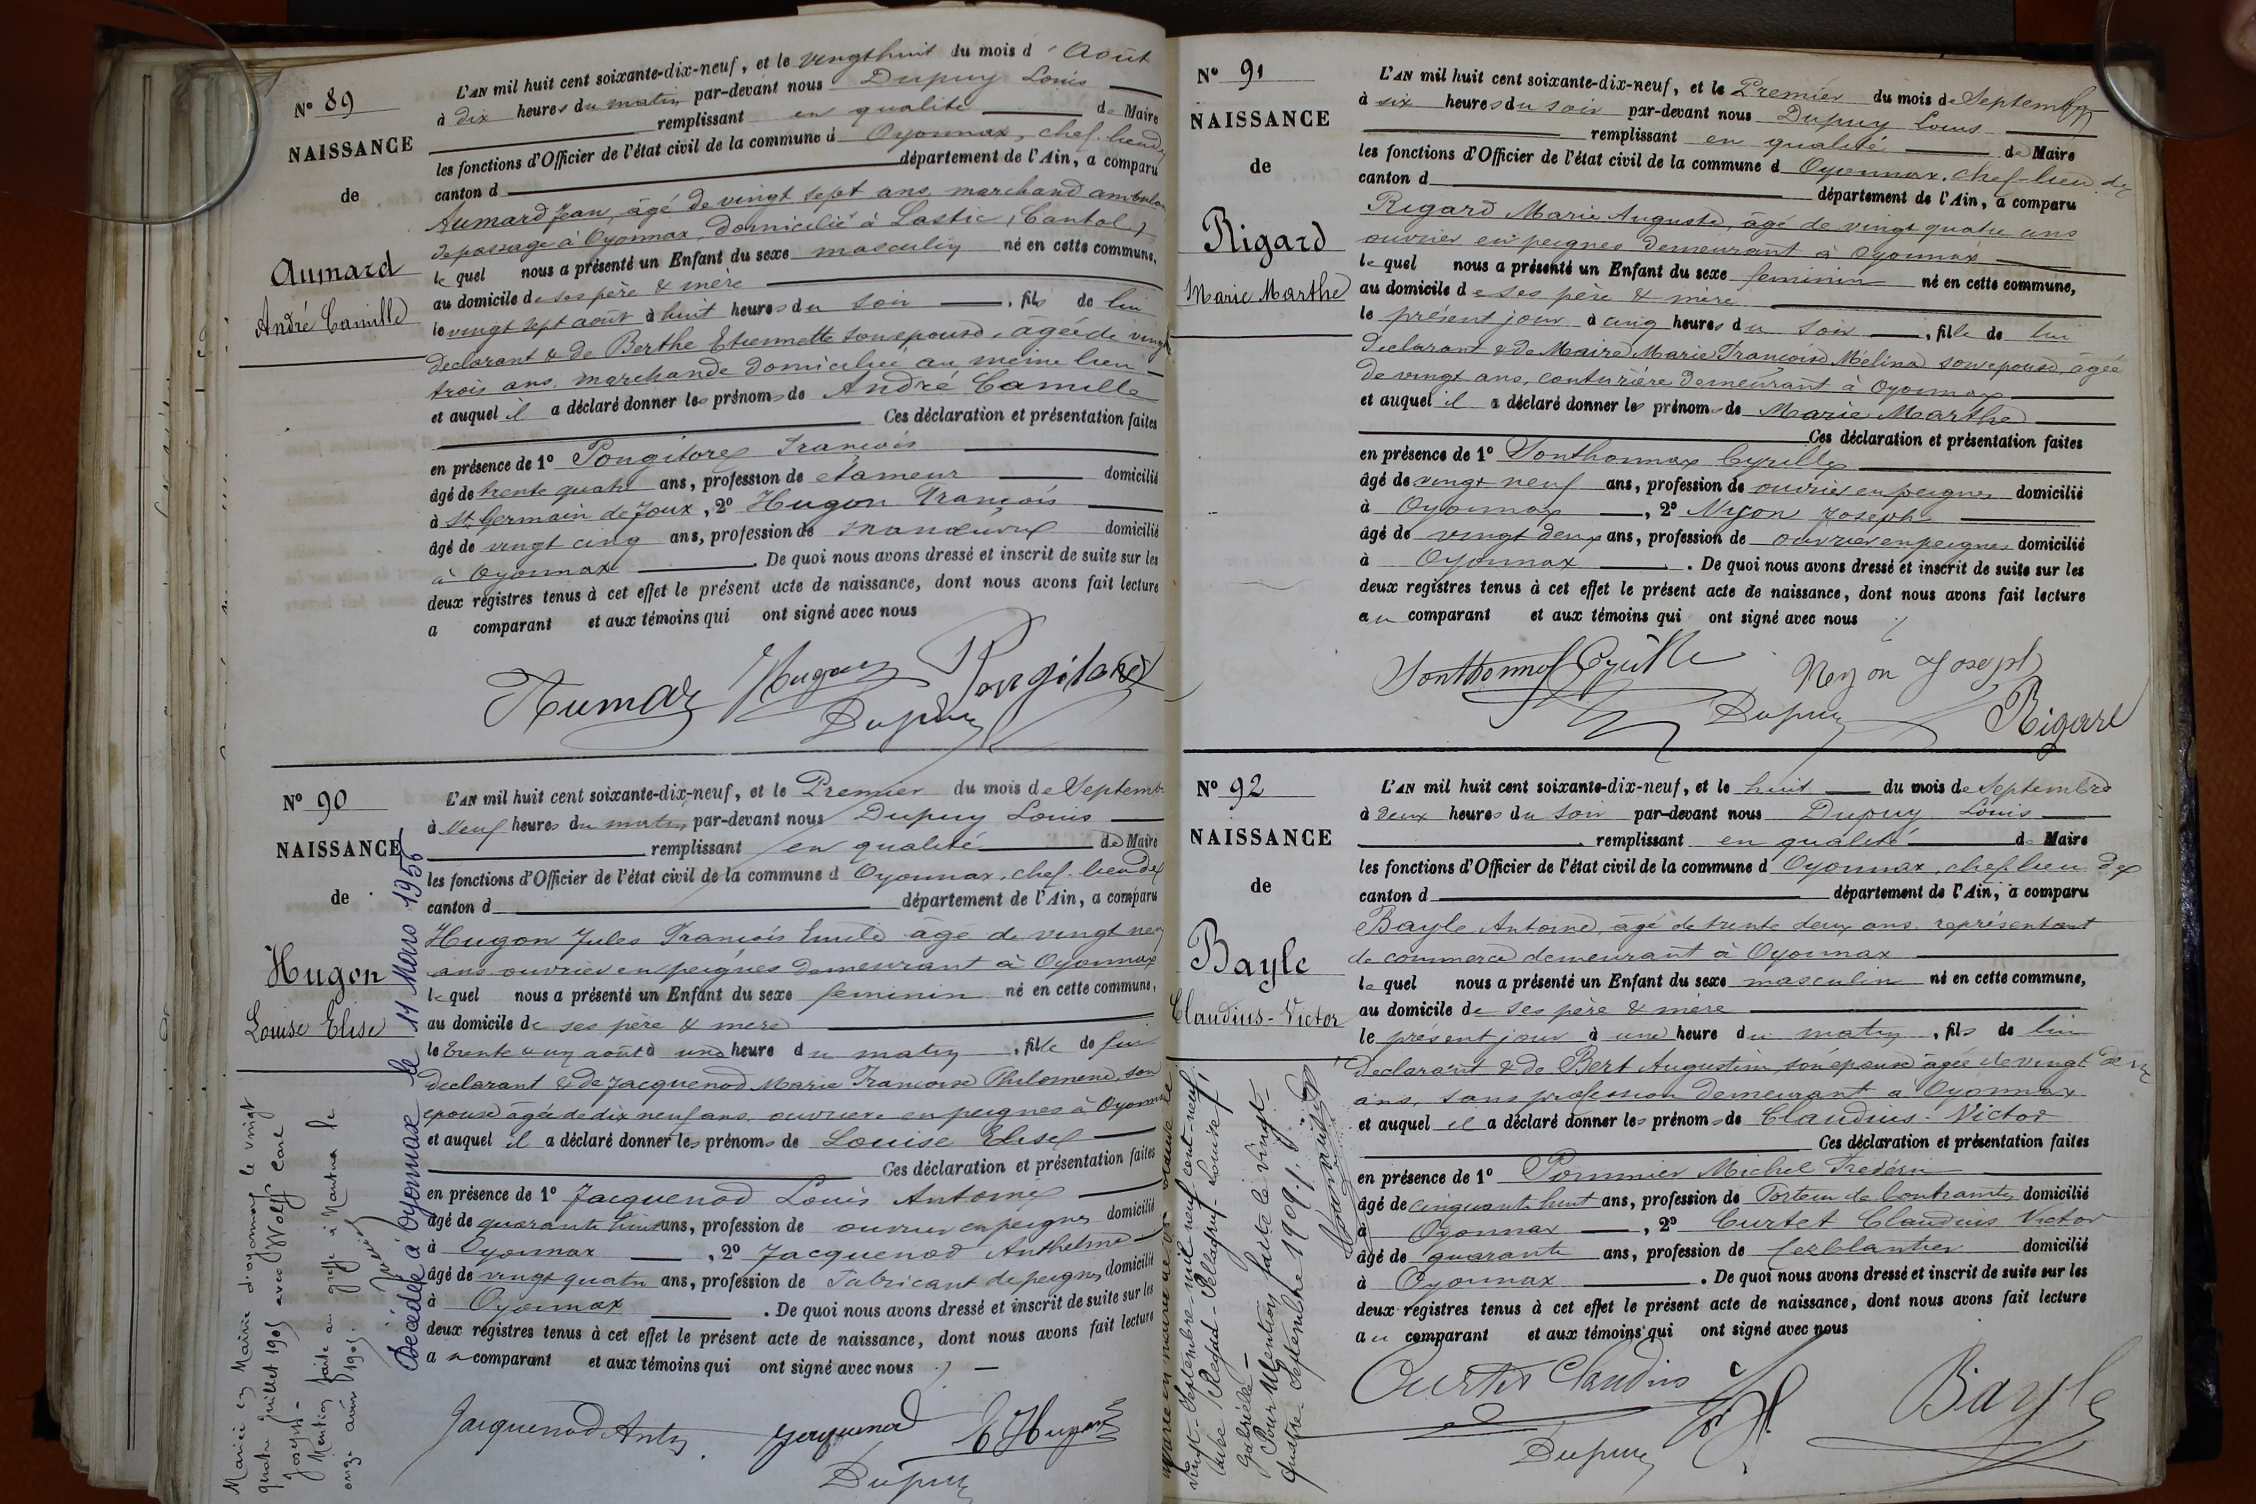 N° 89
NAISSANCE
de
Aumard
André Camille
L'AN mil huit cent soixante-dix-neuf, et le vingt huit du mois d'Août
à dix heures du matin par-devant nous Dupuy Louis
remplissant en qualité de Maire
les fonctions d'Officier de l'état civil de la commune d Oyonnax, chef-lieu de
canton d département de l'Ain, a comparu
Aumard Jean, âgé de vingt sept ans, marchand ambulant
de passage à Oyonnax, domicilié à Lastic (Cantal)
lequel nous a présenté un Enfant du sexe masculin né en cette commune,
au domicile de ses père & mère
le vingt sept août à huit heures du soir, fils de lui
déclarant & de Berthe Etiennette son épouse, âgée de vingt
trois ans, marchande domiciliée au même lieu
et auquel il a déclaré donner les prénoms de André Camille
Ces déclaration et présentation faites
en présence de 1° Pongitore François
âgé de trente quatre ans, profession de étameur domicilié
à St Germain de Joux, 2° Hugon François
âgé de vingt cinq ans, profession de manœuvre domicilié
à Oyonnax. De quoi nous avons dressé et inscrit de suite sur les
deux registres tenus à cet effet le présent acte de naissance, dont nous avons fait lecture
a comparant et aux témoins qui ont signé avec nous
Aumar Hugon Pongitore
Dupuy
N° 90
NAISSANCE
de
Hugon
Louise Elise
L'AN mil huit cent soixante-dix-neuf, et le Premier du mois de Septembre
à Neuf heures du matin par-devant nous Dupuy Louis
remplissant en qualité de Maire
les fonctions d'Officier de l'état civil de la commune d Oyonnax, chef-lieu de
canton d département de l'Ain, a comparu
Hugon Jules François Emile âgé de vingt neuf
ans ouvrier en peignes demeurant à Oyonnax
lequel nous a présenté un Enfant du sexe feminin né en cette commune,
au domicile de ses père & mère
le trente & un août à une heure du matin, fille de lui
déclarant & de Jacquenod Marie Françoise Philomène, son
épouse âgée de dix neuf ans, ouvrière en peignes à Oyonnax
et auquel il a déclaré donner les prénoms de Louise Elise
Ces déclaration et présentation faites
en présence de 1° Jacquenod Louis Antoine
âgé de quarante huit ans, profession de ouvrier en peignes domicilié
à Oyonnax, 2° Jacquenod Anthelme
âgé de vingt quatre ans, profession de Fabricant de peignes domicilié
à Oyonnax. De quoi nous avons dressé et inscrit de suite sur les
deux registres tenus à cet effet le présent acte de naissance, dont nous avons fait lecture
au comparant et aux témoins qui ont signé avec nous
Jacquenod Anth. Jacquenod E Hugon
Dupuy
Mariée en Mairie d'Oyonnax le vingt
quatre juillet 1905 avec Wolff Carl
Joseph
Mention faite au greffe à Nantua le
onze août 1905.
Décédée à Oyonnax le 11 Mars 1956
N° 91
NAISSANCE
de
Rigard
Marie Marthe
L'AN mil huit cent soixante-dix-neuf, et le Premier du mois de Septembre
à six heures du soir par-devant nous Dupuy Louis
remplissant en qualité de Maire
les fonctions d'Officier de l'état civil de la commune d Oyonnax, chef-lieu de
canton d département de l'Ain, a comparu
Rigard Marie Auguste, âgé de vingt quatre ans
ouvrier en peignes demeurant à Oyonnax
lequel nous a présenté un Enfant du sexe feminin né en cette commune,
au domicile de ses père & mère
le présent jour à cinq heures du soir, fille de lui
déclarant & de Maire Marie Françoise Mélina son épouse, âgée
de vingt ans, couturière demeurant à Oyonnax
et auquel il a déclaré donner les prénoms de Marie Marthe
Ces déclaration et présentation faites
en présence de 1° Sonthonnax Cyrille
âgé de vingt neuf ans, profession de ouvrier en peignes domicilié
à Oyonnax, 2° Neyon Joseph
âgé de vingt deux ans, profession de ouvrier en peignes domicilié
à Oyonnax. De quoi nous avons dressé et inscrit de suite sur les
deux registres tenus à cet effet le présent acte de naissance, dont nous avons fait lecture
au comparant et aux témoins qui ont signé avec nous
Sonthonnax Cyrille Neyon Joseph
Dupuy Rigard
N° 92
NAISSANCE
de
Bayle
Claudius-Victor
L'AN mil huit cent soixante-dix-neuf, et le huit du mois de Septembre
à deux heures du soir par-devant nous Dupuy Louis
remplissant en qualité de Maire
les fonctions d'Officier de l'état civil de la commune d Oyonnax, chef-lieu de
canton d département de l'Ain, a comparu
Bayle Antoine, âgé de trente deux ans, représentant
de commerce demeurant à Oyonnax
lequel nous a présenté un Enfant du sexe masculin né en cette commune,
au domicile de ses père & mère
le présent jour à une heure du matin, fils de lui
déclarant & de Bert Augustine son épouse âgée de vingt deux
ans, sans profession demeurant à Oyonnax
et auquel il a déclaré donner les prénoms de Claudius-Victor
Ces déclaration et présentation faites
en présence de 1° Pommier Michel Frédéric
âgé de cinquante huit ans, profession de Porteur de Contraintes domicilié
à Oyonnax, 2° Curtet Claudius Victor
âgé de quarante ans, profession de ferblantier domicilié
à Oyonnax. De quoi nous avons dressé et inscrit de suite sur les
deux registres tenus à cet effet le présent acte de naissance, dont nous avons fait lecture
au comparant et aux témoins qui ont signé avec nous
Curtet Claudius Bayle
Dupuy
Marié en mairie de
vingt Septembre mil neuf cent neuf
avec Regad-Pellagru Louise
Gabrielle
Pour Mention faite le vingt-
quatre Septembre 1909.